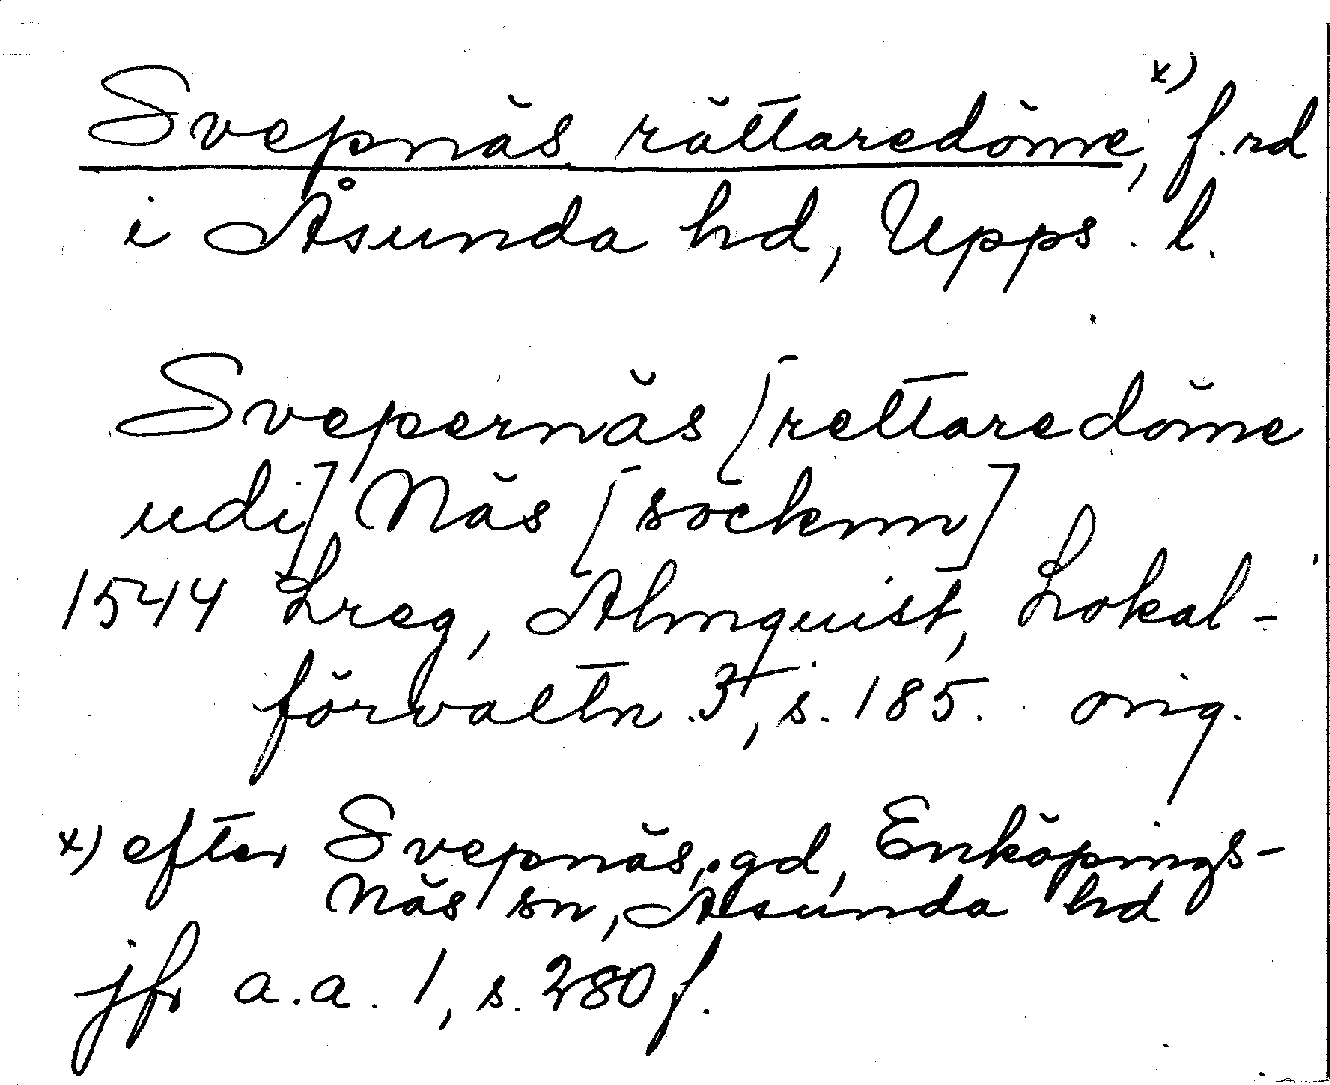 Svepnäs rättaredöme, x) f.rd
i Åsunda hd, Upps. l.
Svepernäs [rettaredöme
udi] Näs [socknn]
1544 Lreg, Almquist, Lokal-
förvaltn 3, s. 185. orig.
x) efter Svepnäs, gd, Enköpings-
Näs sn, Åsunda hd
jfr a.a. 1, s. 280 f.